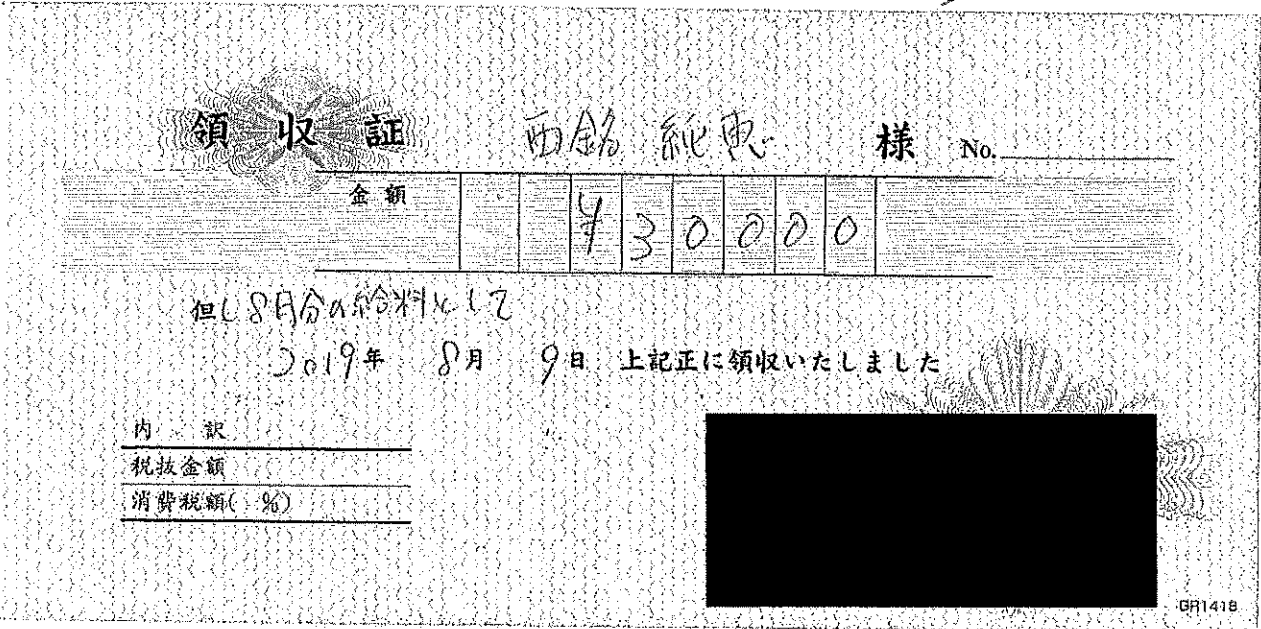 領収証 西銘 純恵 様 No.
金額 ¥30000
但し8月分の給料として
2019年 8月 9日 上記正に領収いたしました
内 訳
税抜金額
消費税額( %)
GR1418